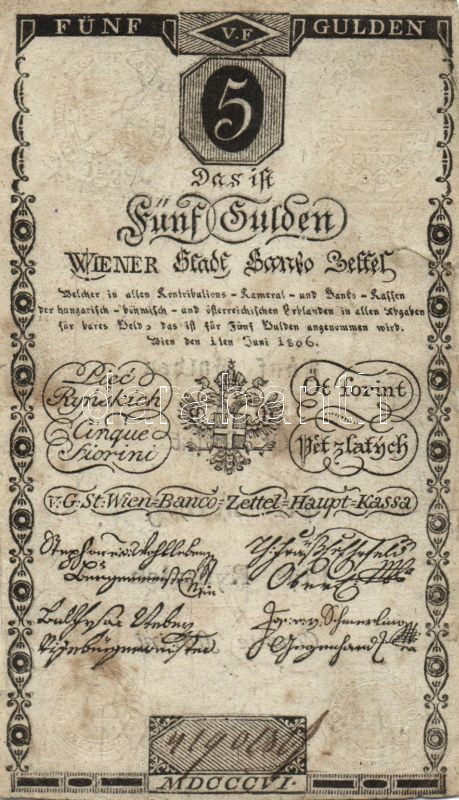 FÜNF V.F GULDEN
5
Das ist
Fünf Gulden
WIENER Stadt Banko Zettel
Welcher in allen Kontributions-Kameral-und Banko-Kassen
der hungarisch-böhmisch-und österreichischen Erblanden in allen Abgaben
für bares Geld, das ist für Fünf Gulden angenommen wird.
Wien den 1ten Juni 1806.
Pięć Ryńskich
Öt forint
Cinque Fiorini
Pět zlatých
V:G:St:Wien=Banco=Zettel=Haupt=Kassa
darabanth
Stephan
Burgermeister
Vizeburgermeister
Schmerling
Gegenhand
MDCCCVI.